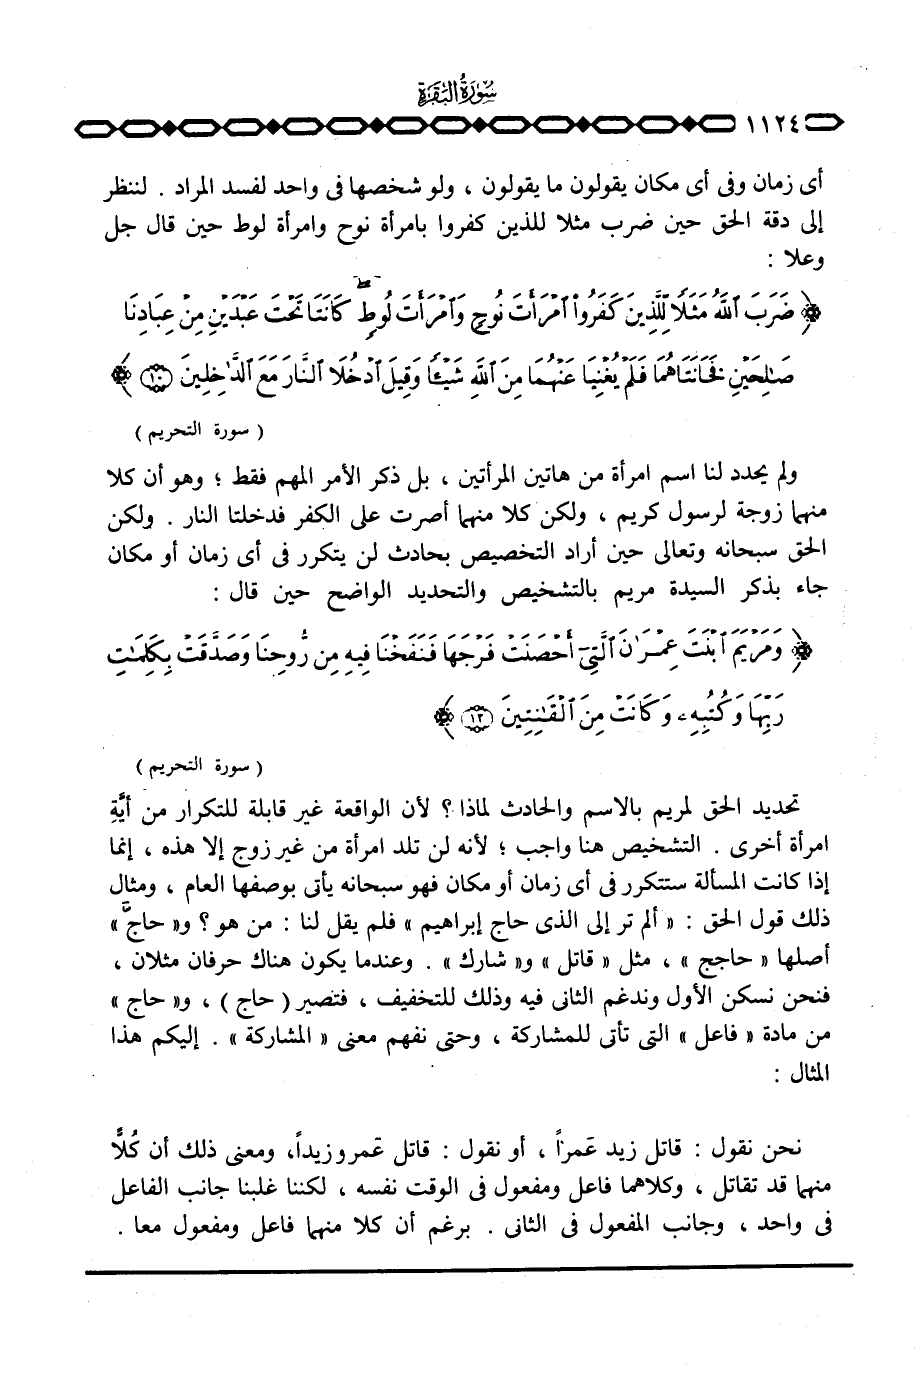 سورة البقرة
١١٢٤
أى زمان وفى أى مكان يقولون ما يقولون ، ولو شخصها فى واحد لفسد المراد . لننظر
إلى دقة الحق حين ضرب مثلا للذين كفروا بامرأة نوح وامرأة لوط حين قال جل
وعلا :
﴿ ضَرَبَ ٱللَّهُ مَثَلًا لِّلَّذِينَ كَفَرُوا۟ ٱمْرَأَتَ نُوحٍ وَٱمْرَأَتَ لُوطٍ ۖ كَانَتَا تَحْتَ عَبْدَيْنِ مِنْ عِبَادِنَا
صَـٰلِحَيْنِ فَخَانَتَاهُمَا فَلَمْ يُغْنِيَا عَنْهُمَا مِنَ ٱللَّهِ شَيْـًٔا وَقِيلَ ٱدْخُلَا ٱلنَّارَ مَعَ ٱلدَّٰخِلِينَ ١٠ ﴾
( سورة التحريم )
ولم يحدد لنا اسم امرأة من هاتين المرأتين ، بل ذكر الأمر المهم فقط ؛ وهو أن كلا
منهما زوجة لرسول كريم ، ولكن كلا منهما أصرت على الكفر فدخلتا النار . ولكن
الحق سبحانه وتعالى حين أراد التخصيص بحادث لن يتكرر فى أى زمان أو مكان
جاء بذكر السيدة مريم بالتشخيص والتحديد الواضح حين قال :
﴿ وَمَرْيَمَ ٱبْنَتَ عِمْرَٰنَ ٱلَّتِىٓ أَحْصَنَتْ فَرْجَهَا فَنَفَخْنَا فِيهِ مِن رُّوحِنَا وَصَدَّقَتْ بِكَلِمَـٰتِ
رَبِّهَا وَكُتُبِهِۦ وَكَانَتْ مِنَ ٱلْقَـٰنِتِينَ ١٢ ﴾
( سورة التحريم )
تحديد الحق لمريم بالاسم والحادث لماذا ؟ لأن الواقعة غير قابلة للتكرار من أيَّةِ
امرأة أخرى . التشخيص هنا واجب ؛ لأنه لن تلد امرأة من غير زوج إلا هذه ، إنما
إذا كانت المسألة ستتكرر فى أى زمان أو مكان فهو سبحانه يأتى بوصفها العام ، ومثال
ذلك قول الحق : « ألم تر إلى الذى حاج إبراهيم » فلم يقل لنا : من هو ؟ و« حاجَّ »
أصلها « حاجج » ، مثل « قاتل » و« شارك » . وعندما يكون هناك حرفان مثلان ،
فنحن نسكن الأول وندغم الثانى فيه وذلك للتخفيف ، فتصير ( حاج ) ، و« حاج »
من مادة « فاعل » التى تأتى للمشاركة ، وحتى نفهم معنى « المشاركة » . إليكم هذا
المثال :
نحن نقول : قاتل زيد عَمراً ، أو نقول : قاتل عَمرو زيداً، ومعنى ذلك أن كُلًّا
منهما قد تقاتل ، وكلاهما فاعل ومفعول فى الوقت نفسه ، لكننا غلبنا جانب الفاعل
فى واحد ، وجانب المفعول فى الثانى . برغم أن كلا منهما فاعل ومفعول معا .